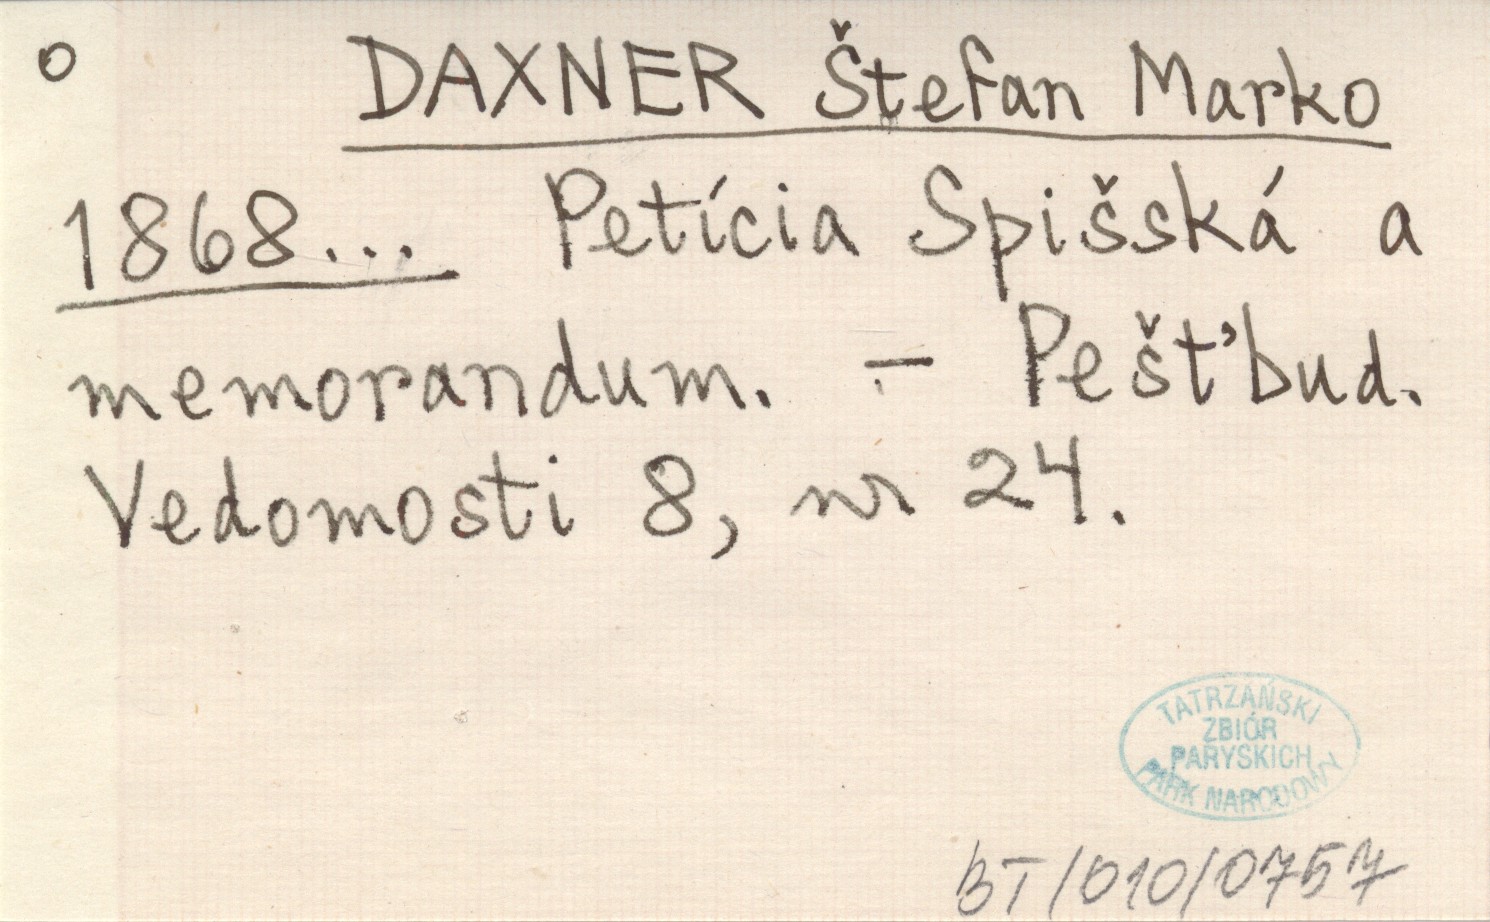 o DAXNER Štefan Marko
1868... Petícia Spišská a
memorandum. – Pešťbud.
Vedomosti 8, nr 24.
TATRZAŃSKI
ZBIÓR
PARYSKICH
PARK NARODOWY
BT/010/0757